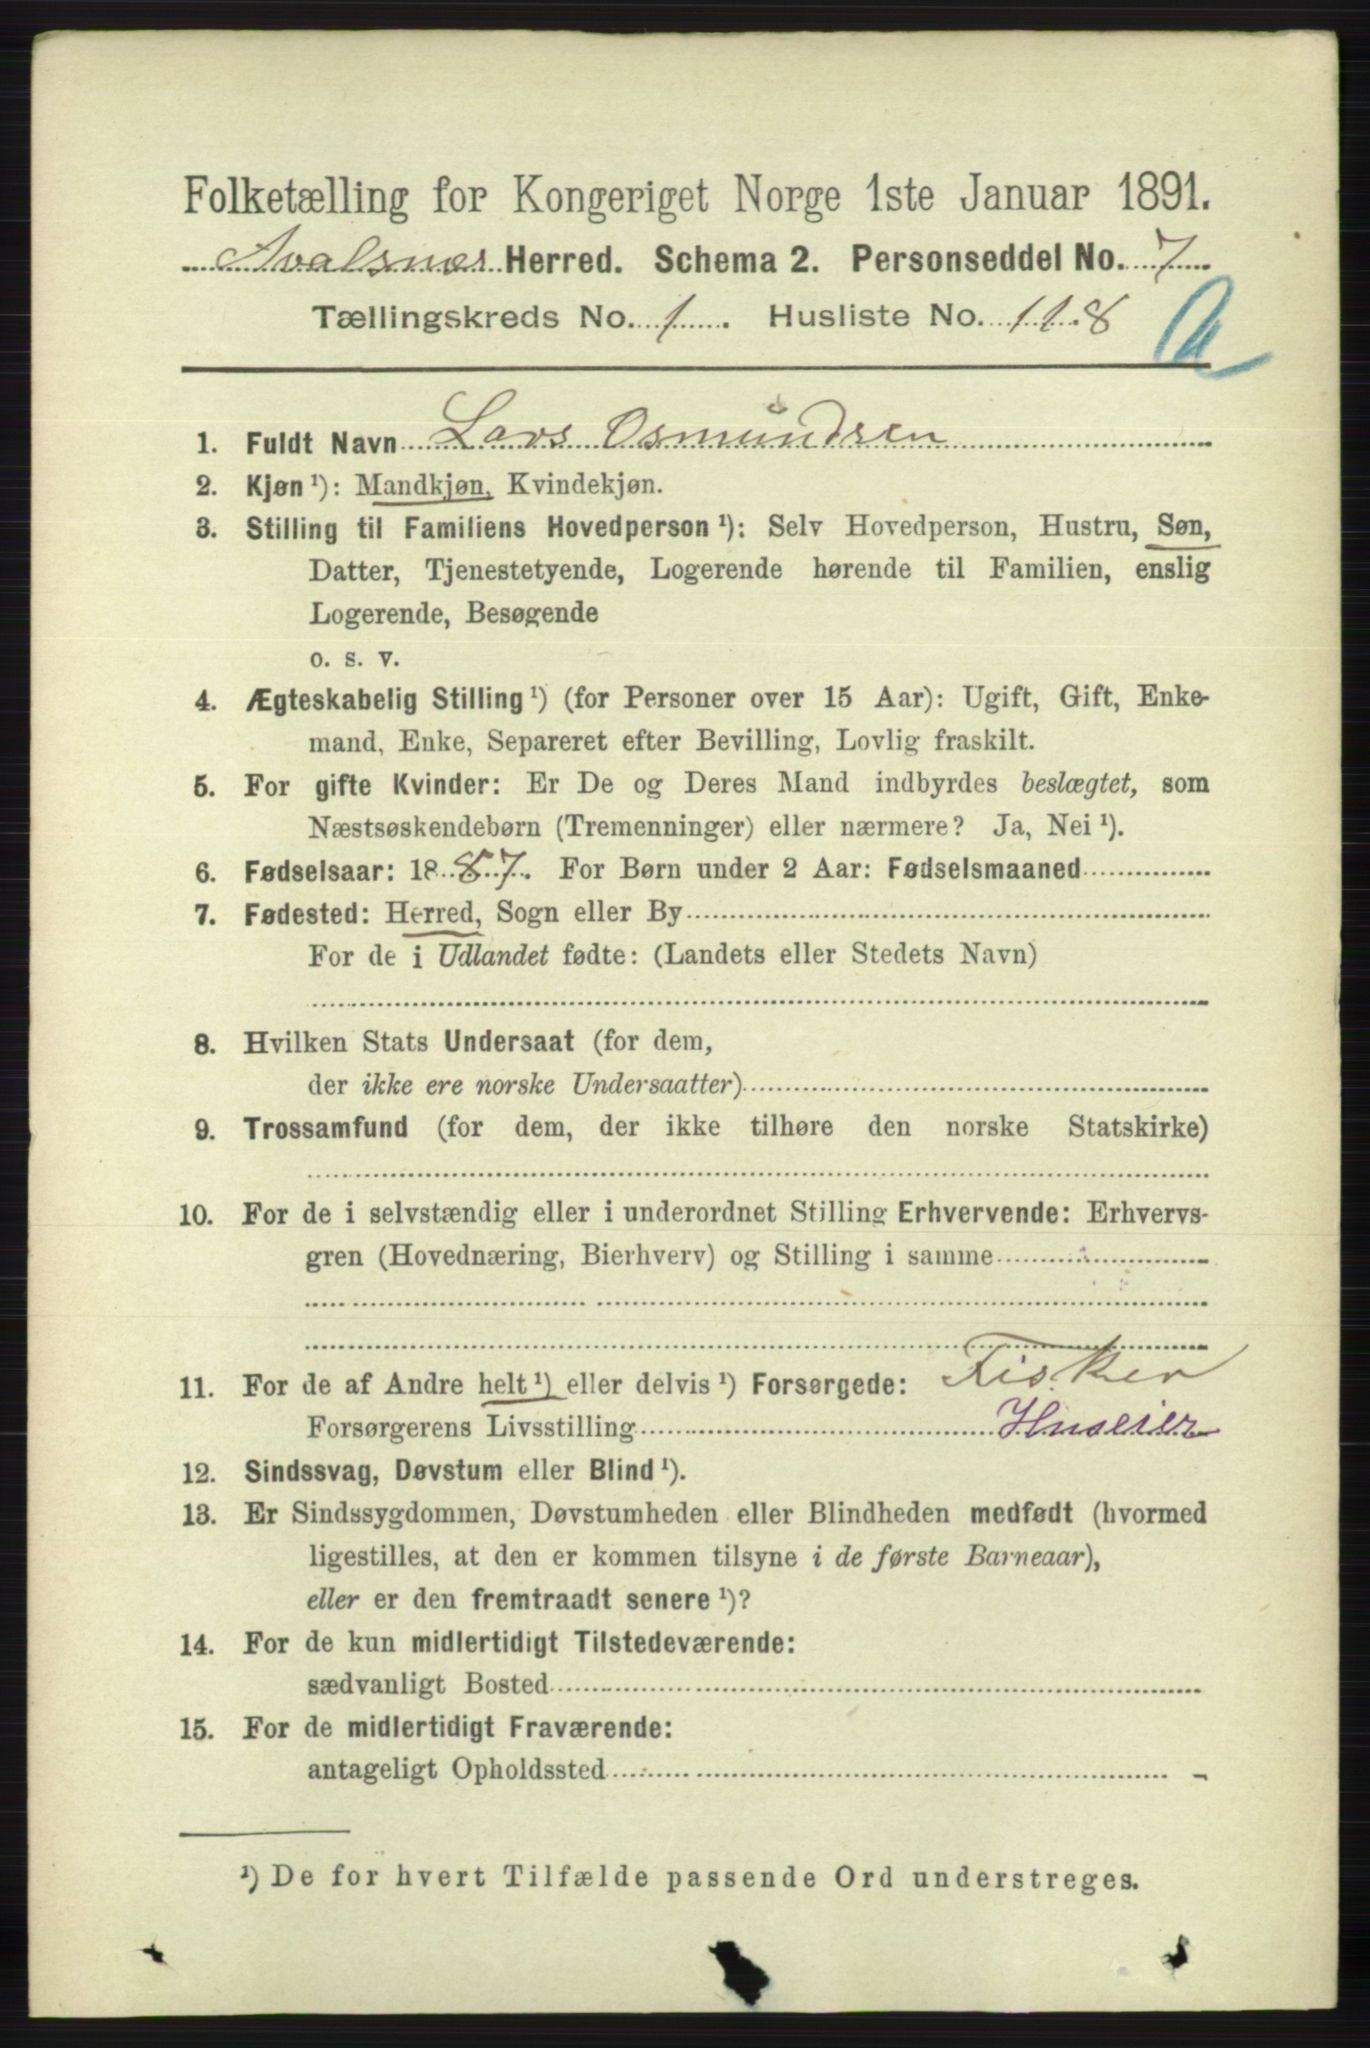 Folketælling for Kongeriget Norge 1ste Januar 1891.
Avalsnes Herred. Schema 2. Personseddel No. 7
Tællingskreds No. 1. Husliste No. 118
1. Fuldt Navn Lars Osmundsen
2. Kjøn ¹): Mandkjøn, Kvindekjøn.
3. Stilling til Familiens Hovedperson ¹): Selv Hovedperson, Hustru, Søn,
Datter, Tjenestetyende, Logerende hørende til Familien, enslig
Logerende, Besøgende
o. s. v.
4. Ægteskabelig Stilling ¹) (for Personer over 15 Aar): Ugift, Gift, Enke-
mand, Enke, Separeret efter Bevilling, Lovlig fraskilt.
5. For gifte Kvinder: Er De og Deres Mand indbyrdes beslægtet, som
Næstsøskendebørn (Tremenninger) eller nærmere? Ja, Nei ¹).
6. Fødselsaar: 1887. For Børn under 2 Aar: Fødselsmaaned
7. Fødested: Herred, Sogn eller By
For de i Udlandet fødte: (Landets eller Stedets Navn)
8. Hvilken Stats Undersaat (for dem,
der ikke ere norske Undersaatter)
9. Trossamfund (for dem, der ikke tilhøre den norske Statskirke)
10. For de i selvstændig eller i underordnet Stilling Erhvervende: Erhvervs-
gren (Hovednæring, Bierhverv) og Stilling i samme
11. For de af Andre helt ¹) eller delvis ¹) Forsørgede: Fisker
Forsørgerens Livsstilling Huseier
12. Sindssvag, Døvstum eller Blind ¹).
13. Er Sindssygdommen, Døvstumheden eller Blindheden medfødt (hvormed
ligestilles, at den er kommen tilsyne i de første Barneaar),
eller er den fremtraadt senere ¹)?
14. For de kun midlertidigt Tilstedeværende:
sædvanligt Bosted
15. For de midlertidigt Fraværende:
antageligt Opholdssted
¹) De for hvert Tilfælde passende Ord understreges.